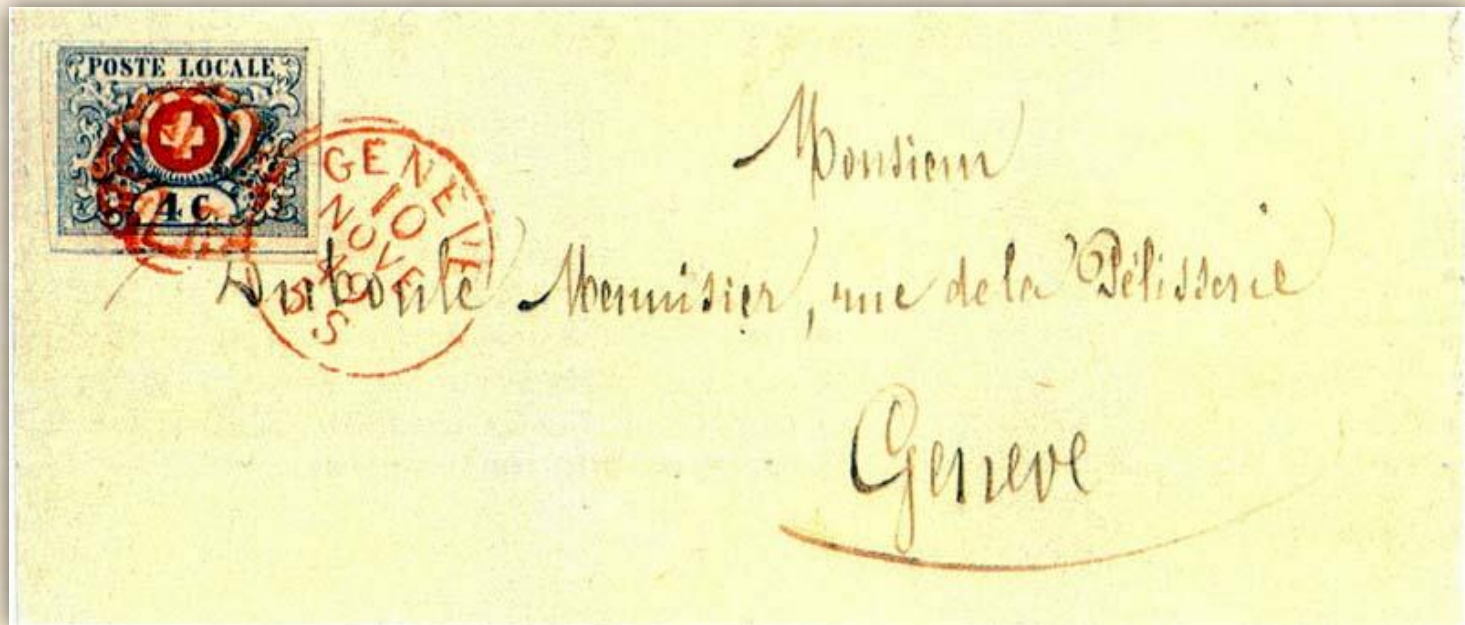 POSTE LOCALE
4 C.
GENÈVE
10
NOVE
49
S
Monsieur
Duboule Menuisier, rue de la Pélisserie
Genève